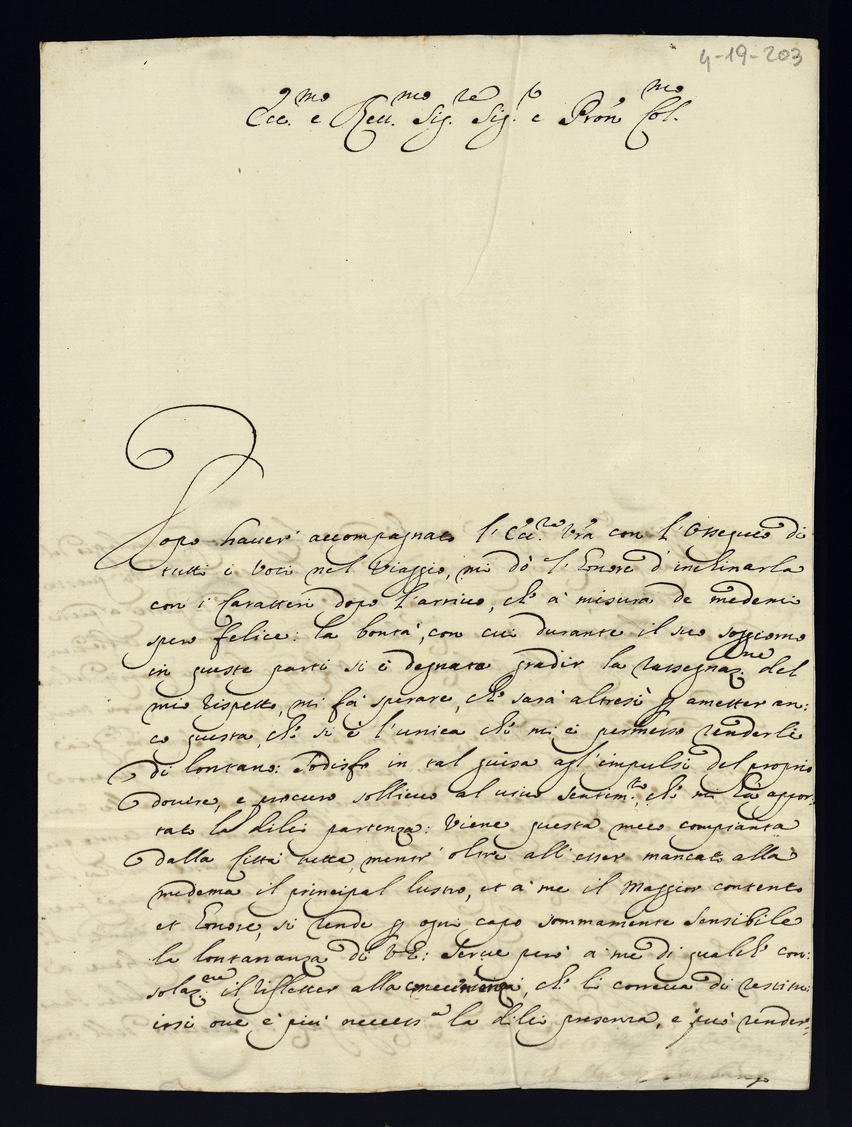 4-19-203
Ecc.mo e Reu.mo Sig.re Sig.r e Pron Col.mo
Dopo hauer' accompagnato l'Ecc.za Vra con l'Ossequio di
tutti i Voti nel Viaggio, mi dò l'Honore d'inchinarla
con i Caratteri dopo l'arriuo, ch'à misura de medemi
spero felice: la bontà, con cui durante il suo soggiorno
in queste parti si è degnata gradir la rassegnaz.ne del
mio rispetto, mi fà sperare, che sarà altresì p ametter an:
co questa, che si è l'unica che mi è permesso renderle
di lontano: Sodisfo in tal guisa agl'impulsi del proprio
douere, e procuro sollieuo al uiuo sentim.to, che mi hà appor:
tato la di lei partenza: Viene questa meco compianta
dalla Città tutta, mentr' oltre all'esser mancato alla
medema il principal lustro, et à me il Maggior contento
et Honore, si rende p ogni capo sommamente sensibile
la lontananza di VE: Serue però à me di qualche con:
solaz.ne il rifletter alla, che li correua di restitu:
irsi oue è più necess.a la di lei presenza, e può render: